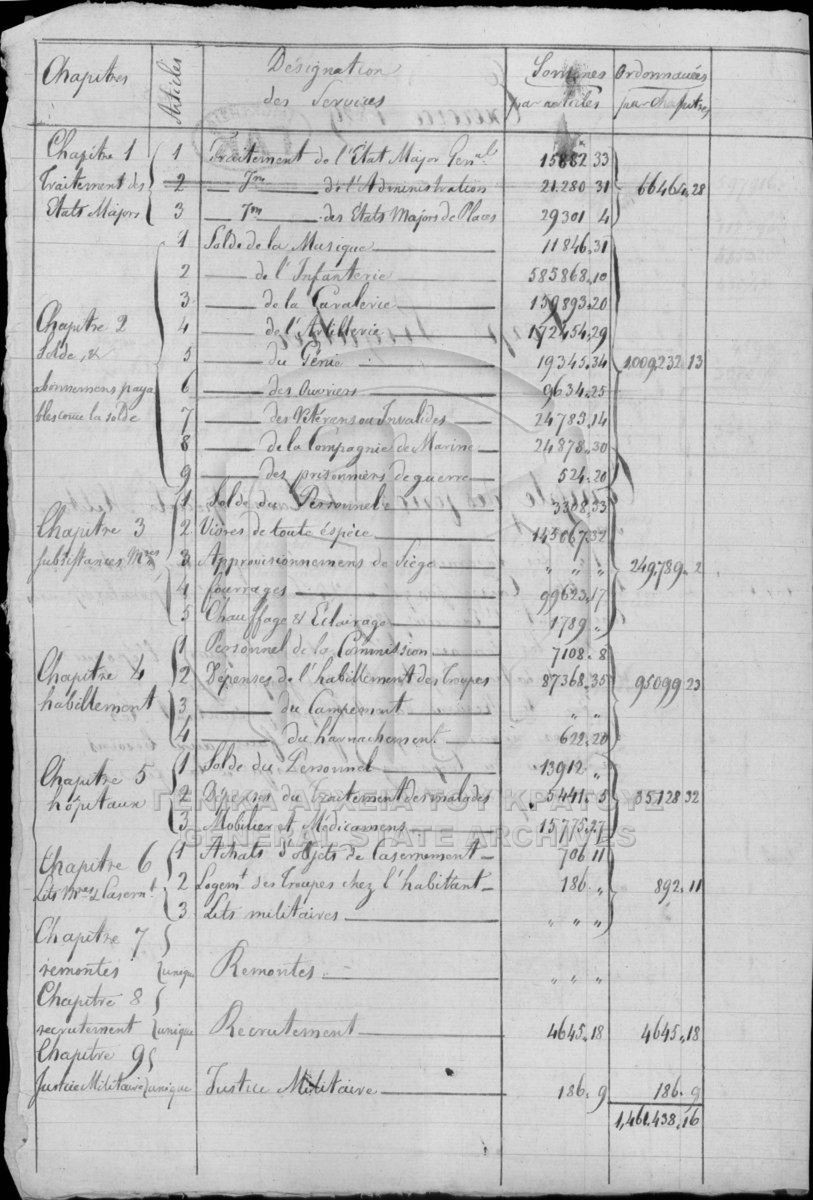 Chapitres Articles Désignation des Services Sommes par articles Ordonnancées par chapitres
Chapitre 1 1 Traitement de l'Etat Major Genal 15882 33
Traitement des 2 — Jm — de l'Administration 21.280 31 66464.28
Etats Majors 3 — Jm — des Etats Majors de Places 29301 4
1 Solde de la Musique 11846.31
2 — de l'Infanterie 585868.10
3 — de la Cavalerie 159893.20
Chapitre 2 4 — de l'Artillerie 172454.29
Solde, & 5 — du Génie 19345.34 1,009,232.13
abonnemens paya 6 — des Ouvriers 9634.25
bles come la solde 7 — des Vétérans ou Invalides 24783.14
8 — de la Compagnie de Marine 24878.30
9 — des prisonniers de guerre 524.20
1 Solde du Personnel 3308.33
Chapitre 3 2 Vivres de toute éspèce 145067.32
Subsistances Mres 3 Approvisionnemens de Siége " " " 249,789.2
4 fourrages 99623.17
5 Chauffage & Eclairage 1789 "
1 Personnel de la Commission 7108.8
Chapitre 4 2 Dépenses de l'habillement des Troupes 87368.35 95099 23
habillement 3 — du Campement " "
4 — du harnachement 622.20
Chapitre 5 1 Solde du Personnel 13912 "
hôpitaux 2 Dépenses du Traitement des malades 5441.5 35128 32
3 Mobilier et Médicamens 15775.27
Chapitre 6 1 Achats d'objets de casernement 706 11
Lits Mres & Casernt 2 Logemt des Troupes chez l'habitant 186 " 892.11
3 Lits militaires " " "
Chapitre 7
remontes unique Remontes " " "
Chapitre 8
recrutement unique Recrutement 4645.18 4645.18
Chapitre 9
Justice Militaire unique Justice Militaire 186.9 186.9
1,461.438.16
ΓΕΝΙΚΑ ΑΡΧΕΙΑ ΤΟΥ ΚΡΑΤΟΥΣ
GENERAL STATE ARCHIVES